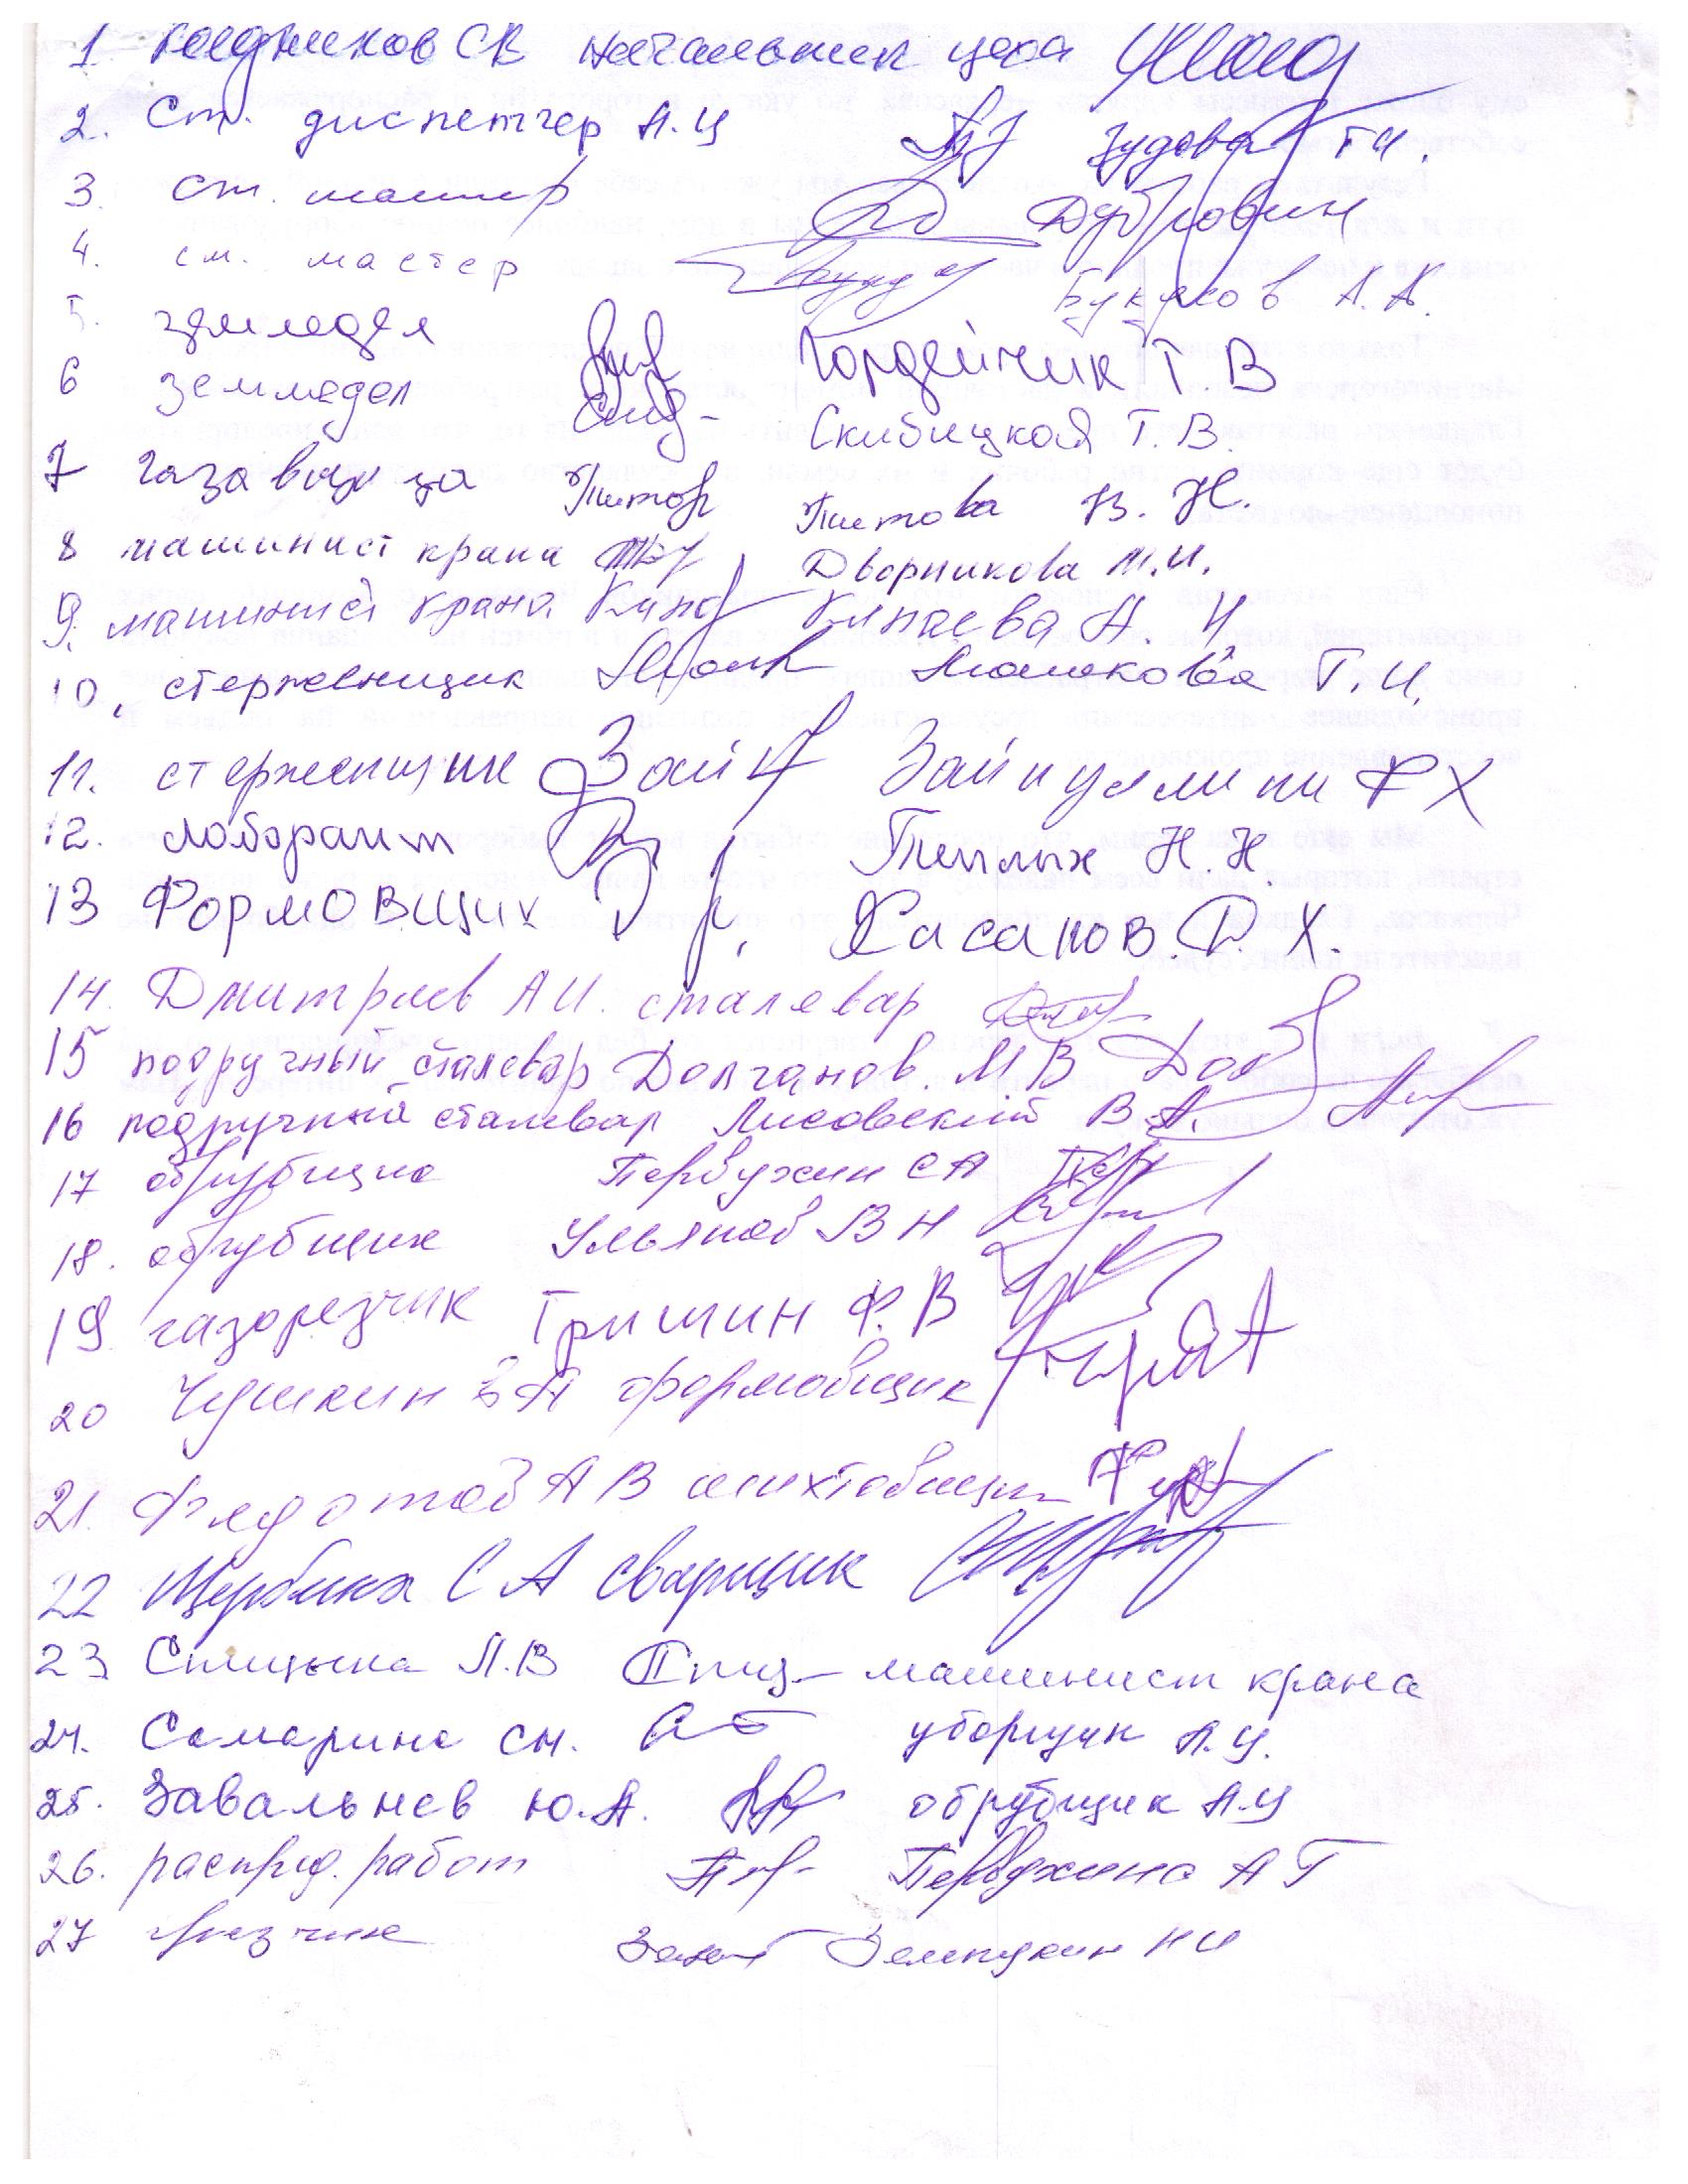 1 СВ начальник цеха
2. Ст. диспетчер Л.Ц Зудова Т И.
3. ст. мастер Дубровин
4. см. мастер Букасов А. А.
5. земледел Гордейчик Т В
6 земледел Скибицкая Т. В.
7 Титова В. Н.
8 машинист крана Дворникова М.И.
9. машинист крана Кинаева А И
10. стерженщик Т. И.
11. стерженщик Зайнуллини Ф Х
12. лоборант Теплых Н. Н.
13 Формовщик Хасанов. Р. Х.
14. Дмитриев А И. сталевар
15 подручный сталевар Долганов. М В
16 подручный сталевар Лисовский В А.
17 обрубщик Первухин С А
18. обрубщик Ульянов В Н
19 газорезчик Гришин Ф. В
20 Чушкин В А формовщик
21. Федотов А В шихтовщик
22 Щербина С А сварщик
23 Спицына Л.В машинист крана
24. Самарина СН. уборщик Л.Ц.
25. Завальнев Ю.А. обрубщик Л.Ц
26. распред. работ Первухина А Г
27 грузчик Н И